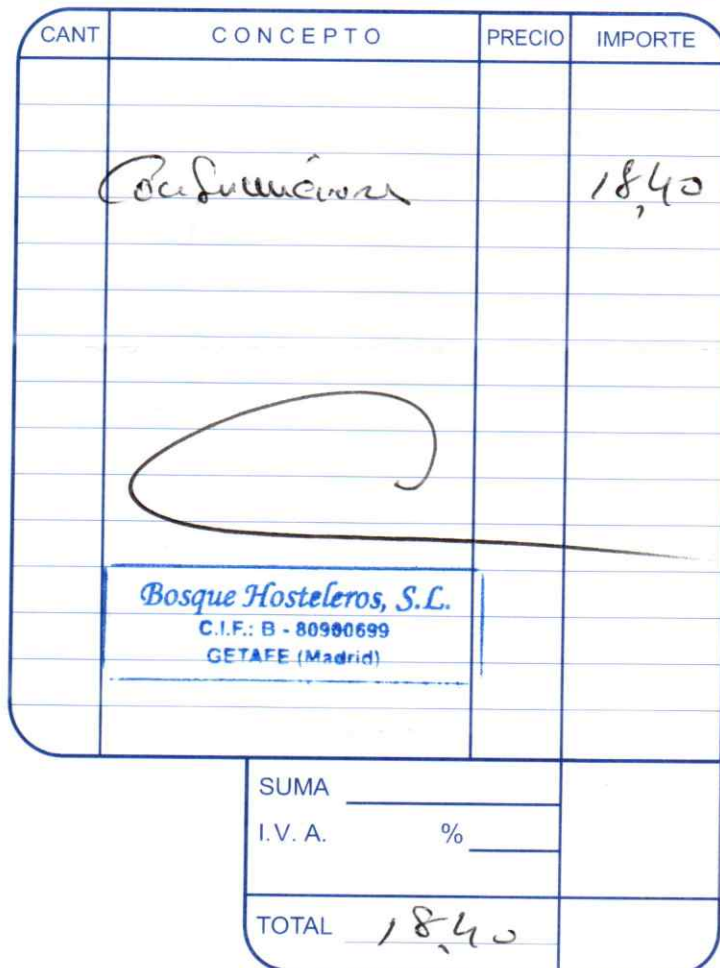 CANT CONCEPTO PRECIO IMPORTE
Consumiciones 18,40
Bosque Hosteleros, S.L.
C.I.F.: B - 80980699
GETAFE (Madrid)
SUMA
I.V.A. %
TOTAL 18,40